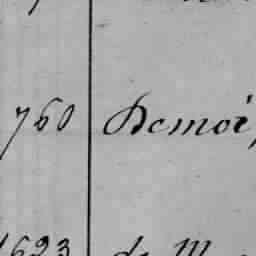 760 Demoi,
1623 de M